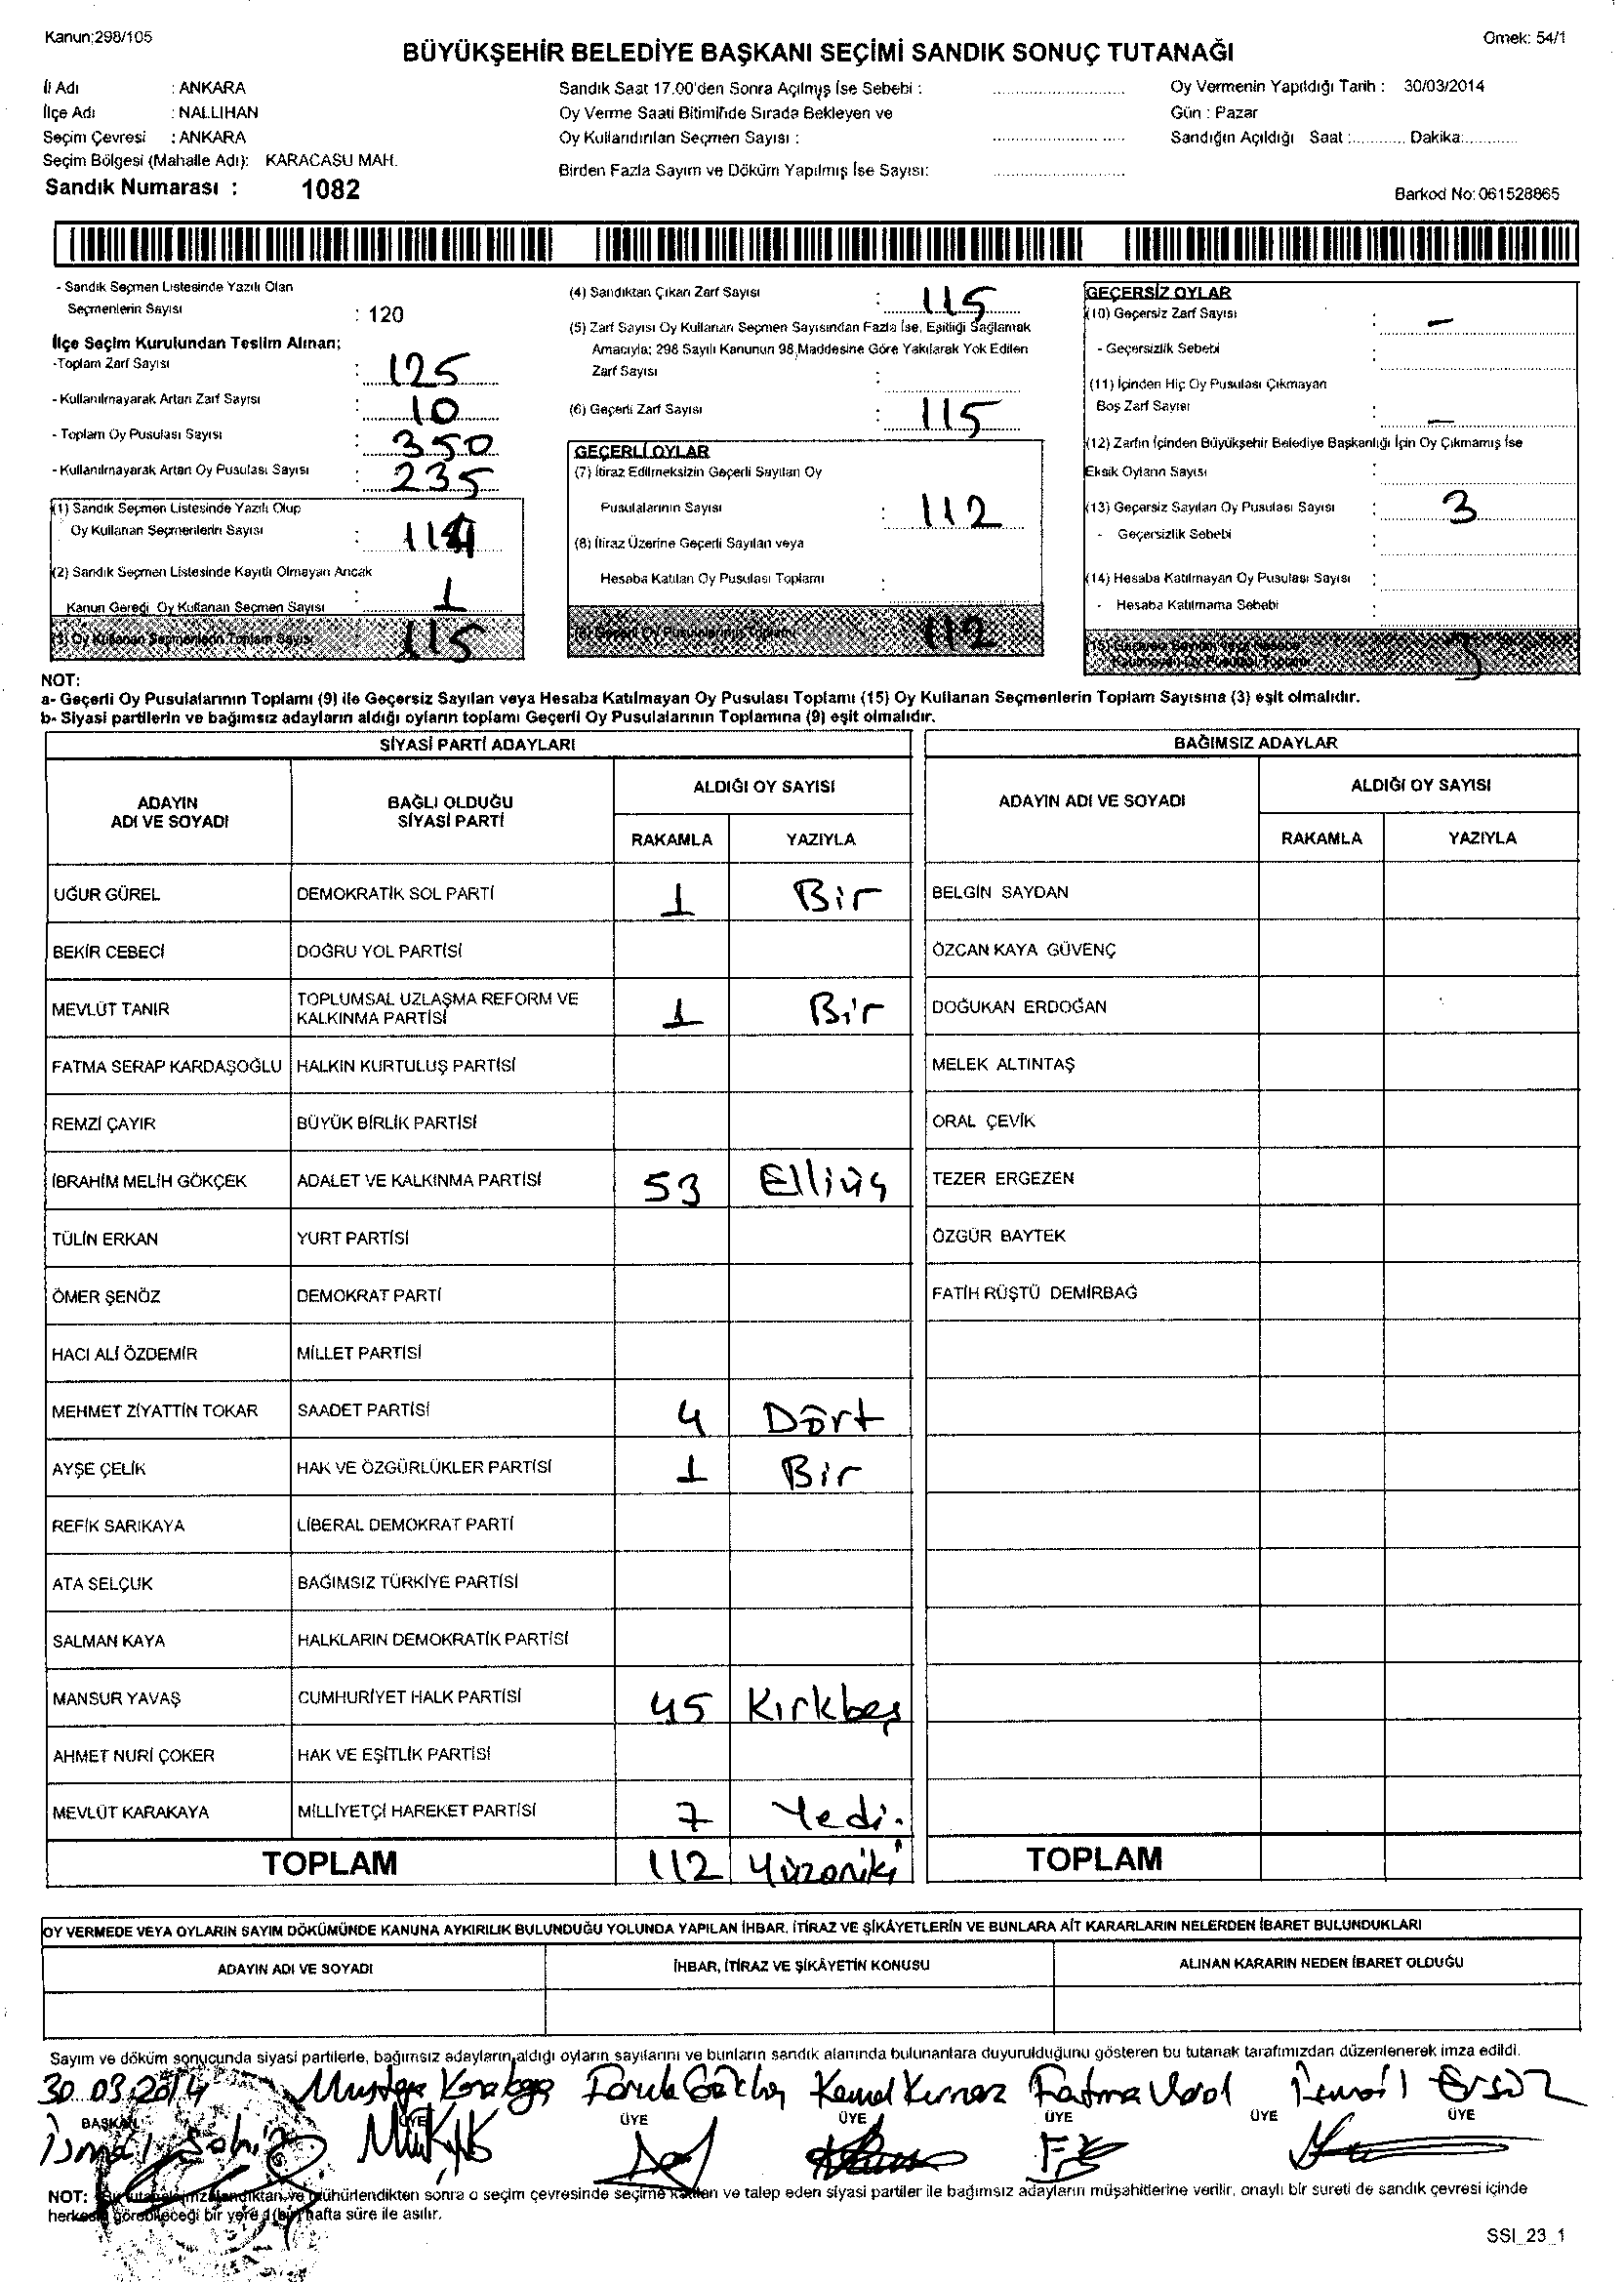 Kanun:298/105
Örnek: 54/1
BÜYÜKŞEHİR BELEDİYE BAŞKANI SEÇİMİ SANDIK SONUÇ TUTANAĞI
İl Adı : ANKARA
İlçe Adı : NALLIHAN
Seçim Çevresi : ANKARA
Seçim Bölgesi (Mahalle Adı): KARACASU MAH.
Sandık Numarası : 1082
Sandık Saat 17.00'den Sonra Açılmış İse Sebebi :
Oy Verme Saati Bitiminde Sırada Bekleyen ve
Oy Kullandırılan Seçmen Sayısı :
Birden Fazla Sayım ve Döküm Yapılmış İse Sayısı:
Oy Vermenin Yapıldığı Tarih : 30/03/2014
Gün : Pazar
Sandığın Açıldığı Saat :............ Dakika:............
Barkod No: 061528865
- Sandık Seçmen Listesinde Yazılı Olan
Seçmenlerin Sayısı : 120
İlçe Seçim Kurulundan Teslim Alınan;
-Toplam Zarf Sayısı : 125
- Kullanılmayarak Artan Zarf Sayısı : 10
- Toplam Oy Pusulası Sayısı : 350
- Kullanılmayarak Artan Oy Pusulası Sayısı : 235
(1) Sandık Seçmen Listesinde Yazılı Olup
Oy Kullanan Seçmenlerin Sayısı : 114
(2) Sandık Seçmen Listesinde Kayıtlı Olmayan Ancak
Kanun Gereği Oy Kullanan Seçmen Sayısı : 1
(3) Oy Kullanan Seçmenlerin Toplam Sayısı 115
(4) Sandıktan Çıkan Zarf Sayısı : 115
(5) Zarf Sayısı Oy Kullanan Seçmen Sayısından Fazla İse, Eşitliği Sağlamak
Amacıyla; 298 Sayılı Kanunun 98.Maddesine Göre Yakılarak Yok Edilen
Zarf Sayısı :
(6) Geçerli Zarf Sayısı : 115
GEÇERLİ OYLAR
(7) İtiraz Edilmeksizin Geçerli Sayılan Oy
Pusulalarının Sayısı : 112
(8) İtiraz Üzerine Geçerli Sayılan veya
Hesaba Katılan Oy Pusulası Toplamı :
(9) Geçerli Oy Pusulalarının Toplamı 112
GEÇERSİZ OYLAR
(10) Geçersiz Zarf Sayısı : -
- Geçersizlik Sebebi
(11) İçinden Hiç Oy Pusulası Çıkmayan
Boş Zarf Sayısı : -
(12) Zarfın İçinden Büyükşehir Belediye Başkanlığı İçin Oy Çıkmamış İse
Eksik Oyların Sayısı :
(13) Geçersiz Sayılan Oy Pusulası Sayısı : 3
- Geçersizlik Sebebi :
(14) Hesaba Katılmayan Oy Pusulası Sayısı :
- Hesaba Katılmama Sebebi :
(15) Geçersiz Sayılan veya Hesaba
Katılmayan Oy Pusulası Toplamı 3
NOT:
a- Geçerli Oy Pusulalarının Toplamı (9) ile Geçersiz Sayılan veya Hesaba Katılmayan Oy Pusulası Toplamı (15) Oy Kullanan Seçmenlerin Toplam Sayısına (3) eşit olmalıdır.
b- Siyasi partilerin ve bağımsız adayların aldığı oyların toplamı Geçerli Oy Pusulalarının Toplamına (9) eşit olmalıdır.
SİYASİ PARTİ ADAYLARI
ADAYIN ADI VE SOYADI BAĞLI OLDUĞU SİYASİ PARTİ ALDIĞI OY SAYISI
RAKAMLA YAZIYLA
UĞUR GÜREL DEMOKRATİK SOL PARTİ 1 Bir
BEKİR CEBECİ DOĞRU YOL PARTİSİ
MEVLÜT TANIR TOPLUMSAL UZLAŞMA REFORM VE KALKINMA PARTİSİ 1 Bir
FATMA SERAP KARDAŞOĞLU HALKIN KURTULUŞ PARTİSİ
REMZİ ÇAYIR BÜYÜK BİRLİK PARTİSİ
İBRAHİM MELİH GÖKÇEK ADALET VE KALKINMA PARTİSİ 53 Elliüç
TÜLİN ERKAN YURT PARTİSİ
ÖMER ŞENÖZ DEMOKRAT PARTİ
HACI ALİ ÖZDEMİR MİLLET PARTİSİ
MEHMET ZİYATTİN TOKAR SAADET PARTİSİ 4 Dört
AYŞE ÇELİK HAK VE ÖZGÜRLÜKLER PARTİSİ 1 Bir
REFİK SARIKAYA LİBERAL DEMOKRAT PARTİ
ATA SELÇUK BAĞIMSIZ TÜRKİYE PARTİSİ
SALMAN KAYA HALKLARIN DEMOKRATİK PARTİSİ
MANSUR YAVAŞ CUMHURİYET HALK PARTİSİ 45 Kırkbeş
AHMET NURİ ÇOKER HAK VE EŞİTLİK PARTİSİ
MEVLÜT KARAKAYA MİLLİYETÇİ HAREKET PARTİSİ 7 Yedi.
TOPLAM 112 Yüzoniki
BAĞIMSIZ ADAYLAR
ADAYIN ADI VE SOYADI ALDIĞI OY SAYISI
RAKAMLA YAZIYLA
BELGİN SAYDAN
ÖZCAN KAYA GÜVENÇ
DOĞUKAN ERDOĞAN
MELEK ALTINTAŞ
ORAL ÇEVİK
TEZER ERGEZEN
ÖZGÜR BAYTEK
FATİH RÜŞTÜ DEMİRBAĞ
TOPLAM
OY VERMEDE VEYA OYLARIN SAYIM DÖKÜMÜNDE KANUNA AYKIRILIK BULUNDUĞU YOLUNDA YAPILAN İHBAR, İTİRAZ VE ŞİKÂYETLERİN VE BUNLARA AİT KARARLARIN NELERDEN İBARET BULUNDUKLARI
ADAYIN ADI VE SOYADI İHBAR, İTİRAZ VE ŞİKÂYETİN KONUSU ALINAN KARARIN NEDEN İBARET OLDUĞU
Sayım ve döküm sonucunda siyasi partilerle, bağımsız adayların aldığı oyların sayılarını ve bunların sandık alanında bulunanlara duyurulduğunu gösteren bu tutanak tarafımızdan düzenlenerek imza edildi.
30.03.2014 Mustafa Faruk Kemal Fatma İsmail
BAŞKAN ÜYE ÜYE ÜYE ÜYE ÜYE ÜYE
İsmail Şahin
NOT: Bu tutanak imzalandıktan ve mühürlendikten sonra o seçim çevresinde seçime katılan ve talep eden siyasi partiler ile bağımsız adayların müşahitlerine verilir, onaylı bir sureti de sandık çevresi içinde
herkesin görebileceği bir yere 1 (bir) hafta süre ile asılır.
SSI_23_1